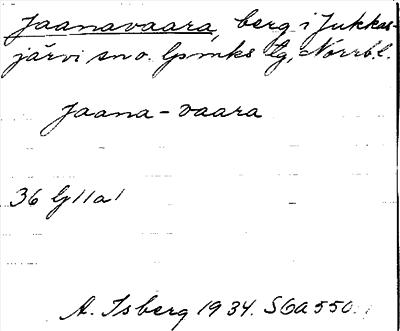 Jaanavaara, berg i Jukkas-
järvi sn o. lpmks tg, Norrb.l.
Jaana-vaara
36 G11a1
A. Isberg 1934. S6a550.